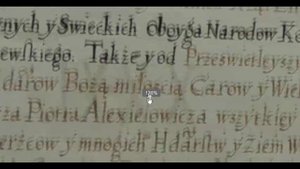 nych y Swieckich oboyga Narodow Ko
ewskiego. Także y od Prześwietleyszy
darow Bożą miłością Carow y Wie
za Piotra Alexiejowicza wszytkiey
ierżcow y mnogich Hdarstw y Ziem W